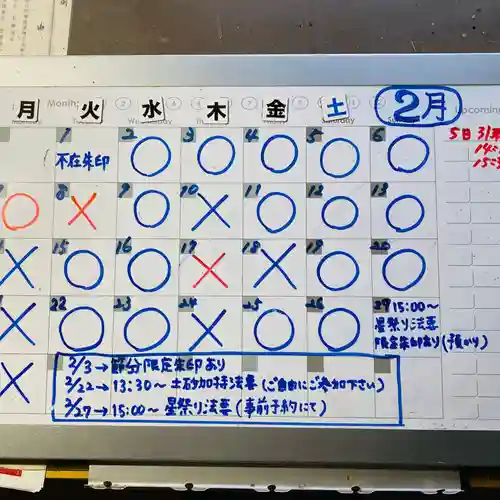 月 火 水 木 金 土 2月
Month:
5日
1 2 3 4 5 6
不在朱印 ○ ○ ○ ○ ○
8 9 10 11 12 13
○ × ○ × ○ ○ ○
15 16 17 18 19 20
× ○ ○ × × ○ ○
22 23 24 25 26 27
× ○ ○ × ○ ○
15:00〜
星祭り法要
限定朱印あり(預かり)
×
2/3→節分限定朱印あり
2/22→13:30〜土砂加持法要(ご自由にご参加下さい)
2/27→15:00〜星祭り法要(事前予約にて)